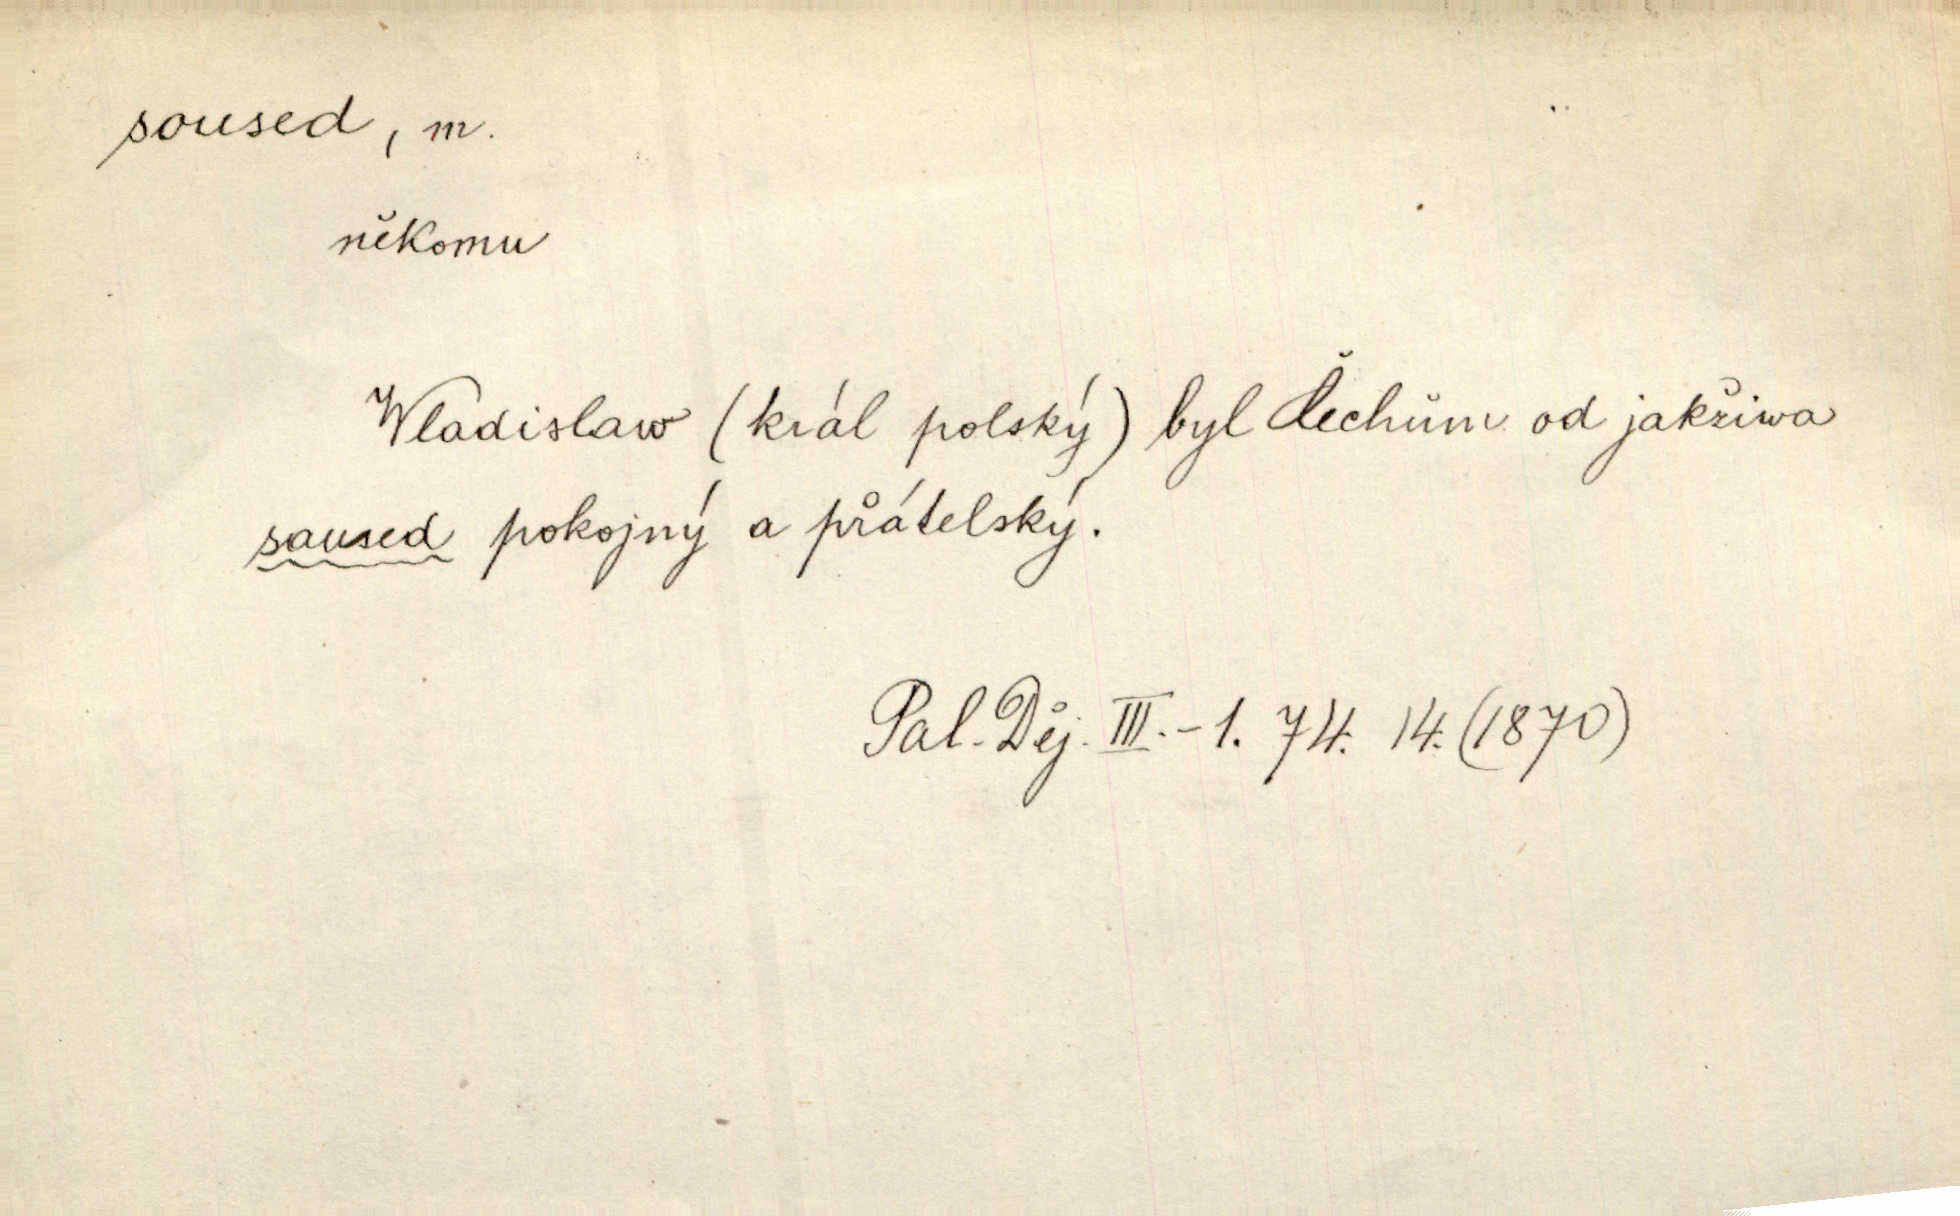 soused, m.
někomu
Wladislaw (král polský) byl Čechům od jakživa
saused pokojný a přátelský.
Pal. Děj. III.-1. 74. 14. (1870)